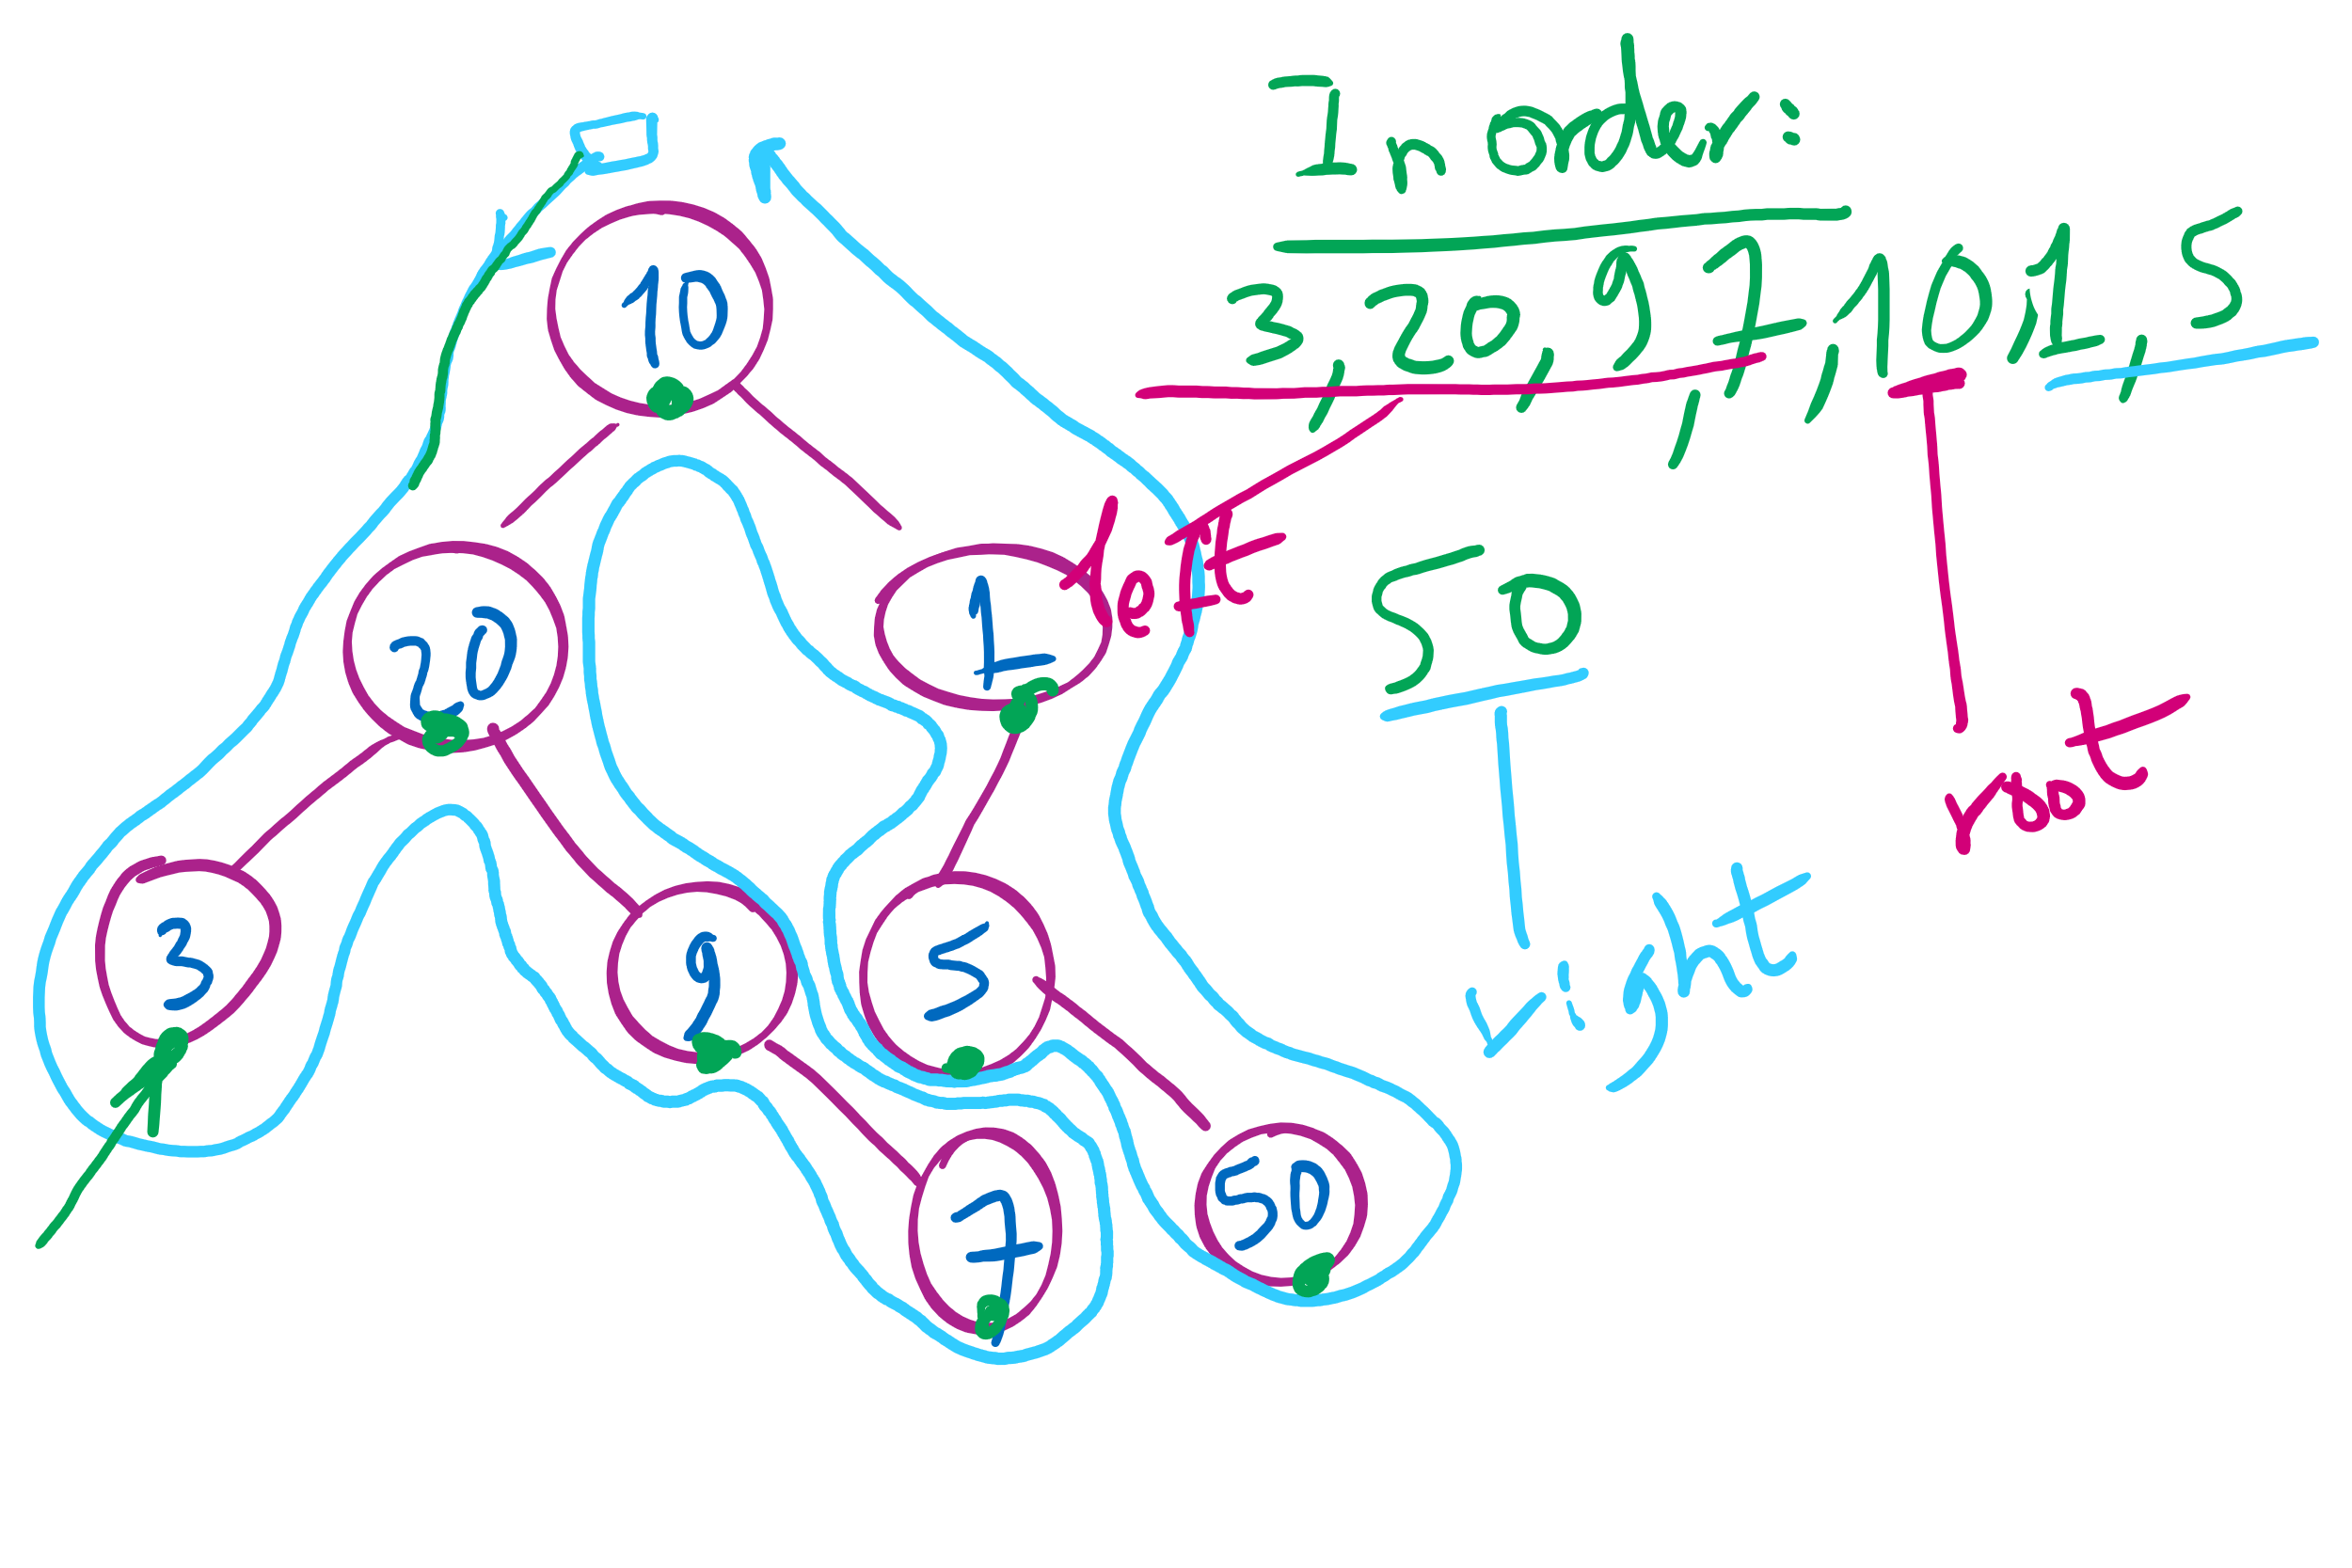 Inorder:
3, 20, 9, 7, 10, 1, 5
50
left
root
right
10
20
1
3
9
5
7
50